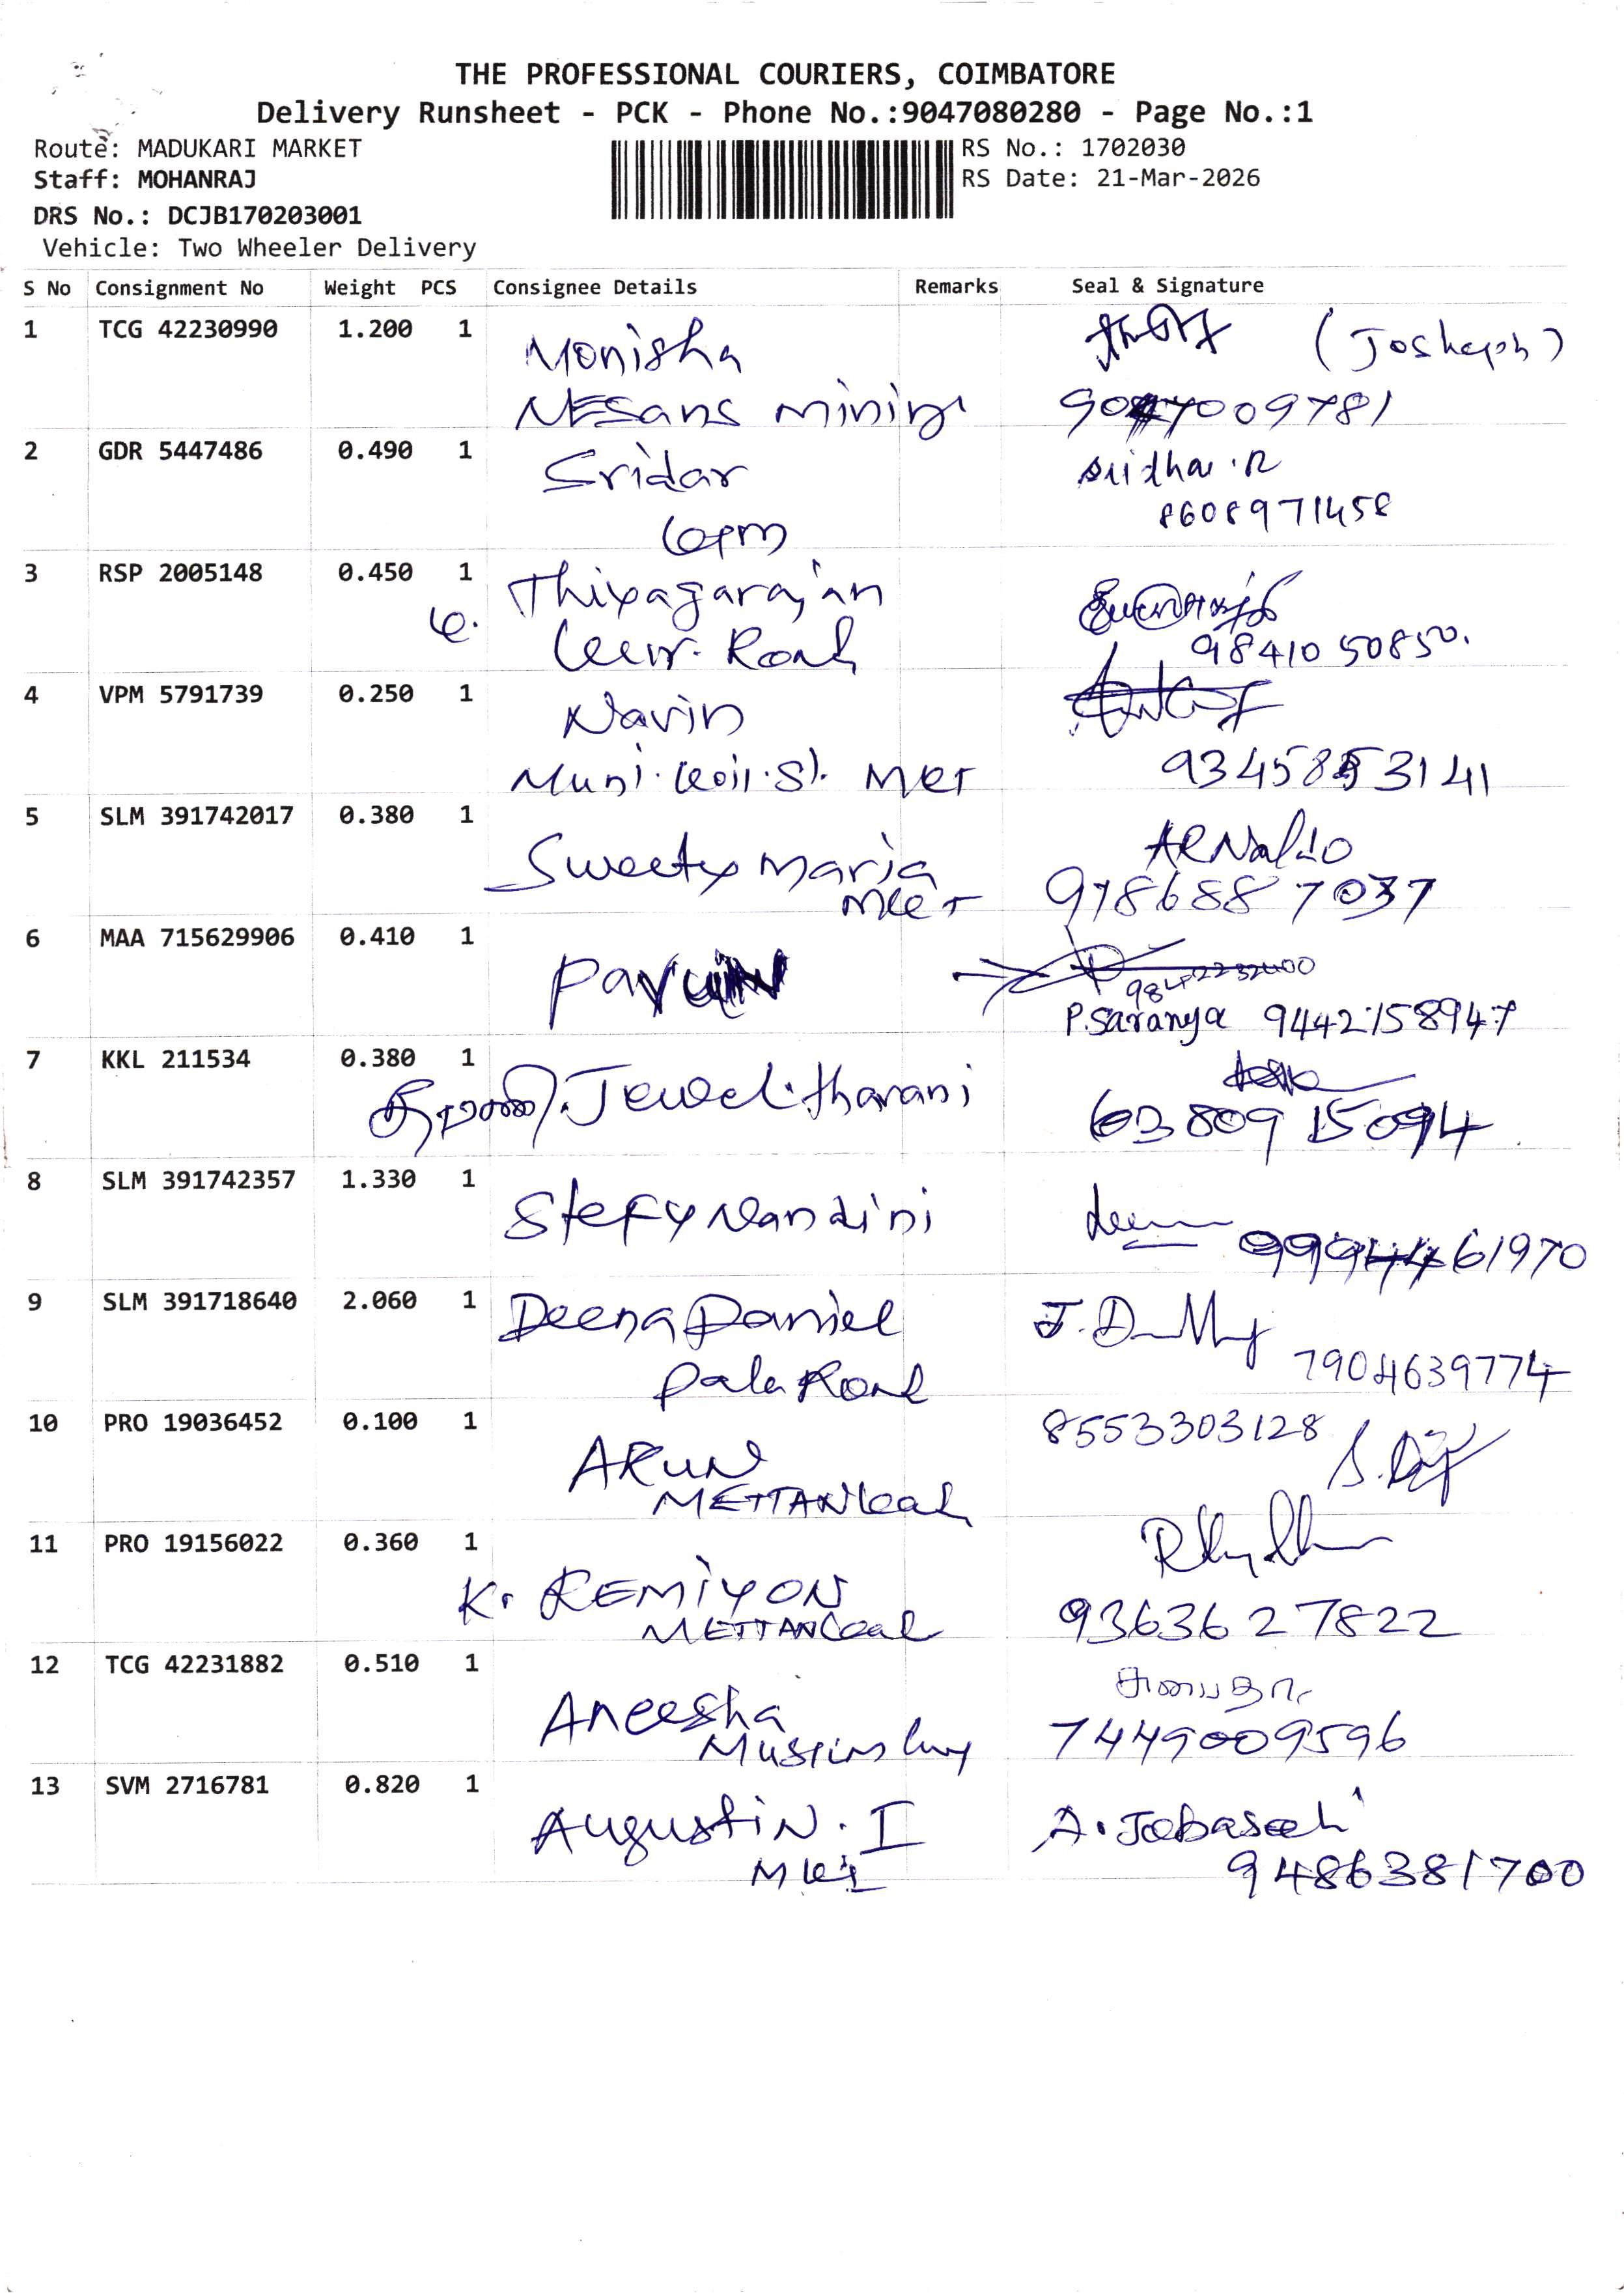 THE PROFESSIONAL COURIERS, COIMBATORE
Delivery Runsheet - PCK - Phone No.:9047080280 - Page No.:1
Route: MADUKARI MARKET
RS No.: 1702030
Staff: MOHANRAJ
RS Date: 21-Mar-2026
DRS No.: DCJB170203001
Vehicle: Two Wheeler Delivery
S No Consignment No Weight PCS Consignee Details Remarks Seal & Signature
1 TCG 42230990 1.200 1 Monisha (Josheph)
NESans mining 9047009781
2 GDR 5447486 0.490 1 Sridar Sridhar.R
8608971458
3 RSP 2005148 0.450 1 Thiyagarajan
Road 9841050850.
4 VPM 5791739 0.250 1 Navin
Muni. Koil. St. MKT 9345853141
5 SLM 391742017 0.380 1 Sweety Maria ARNaldo
MKT 9786887037
6 MAA 715629906 0.410 1 9842232400
P.Saranya 9442158947
7 KKL 211534 0.380 1
தாரணி. Jewel. tharani 6380915094
8 SLM 391742357 1.330 1 Stefy Nandini
9994461970
9 SLM 391718640 2.060 1 Deena Daniel
Road 7904639774
10 PRO 19036452 0.100 1 8553303128
ARUN
11 PRO 19156022 0.360 1
K. REMIYON
9363627822
12 TCG 42231882 0.510 1
Aneesha
7449009596
13 SVM 2716781 0.820 1
Augustin. I A. Jebaseeli
9486381700